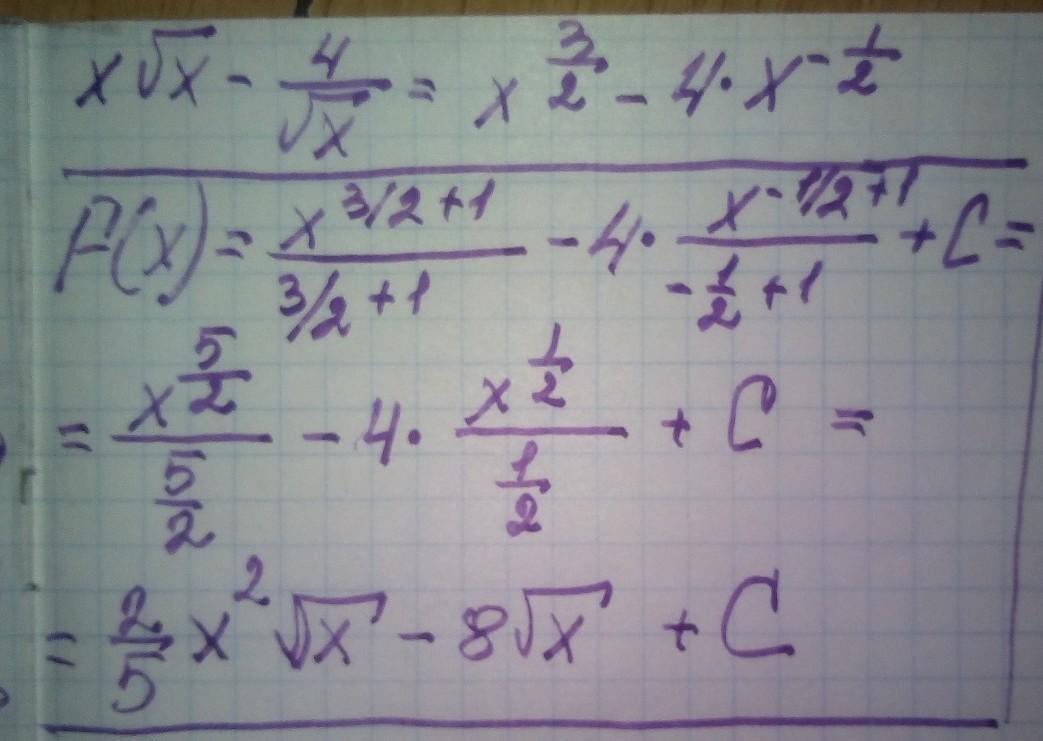 x√x - 4/√x = x^(3/2) - 4·x^(-1/2)
F(x) = x^(3/2+1)/(3/2+1) - 4·x^(-1/2+1)/(-1/2+1) + C =
= x^(5/2)/(5/2) - 4·x^(1/2)/(1/2) + C =
= 2/5 x²√x - 8√x + C